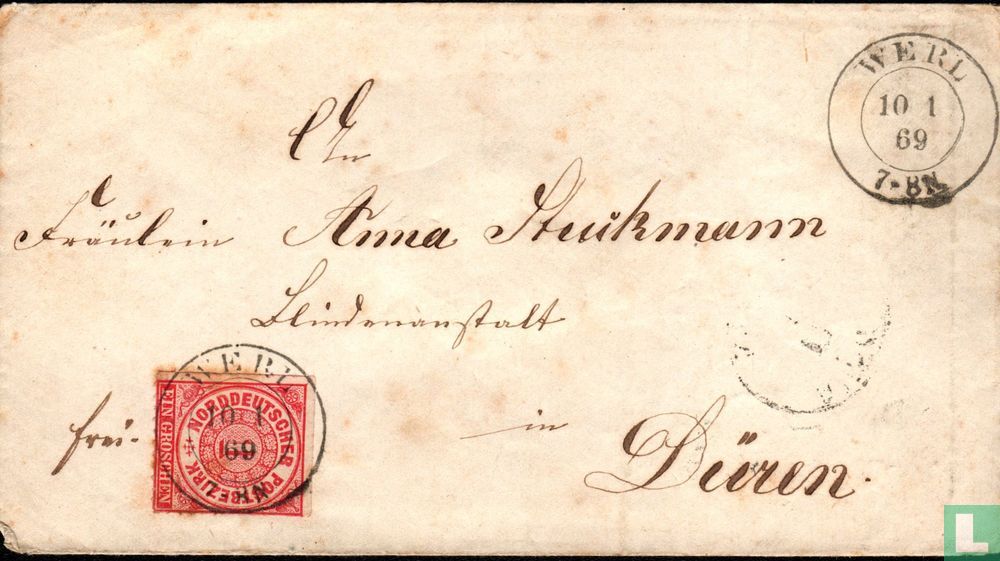 WERL
10 1
69
7-8N
An
Fräulein Anna Stuckmann
Blindenanstalt
WERL
10 1
69
8N
EIN GROSCHEN
NORDDEUTSCHER POSTBEZIRK
frei.
in
Düren.
L